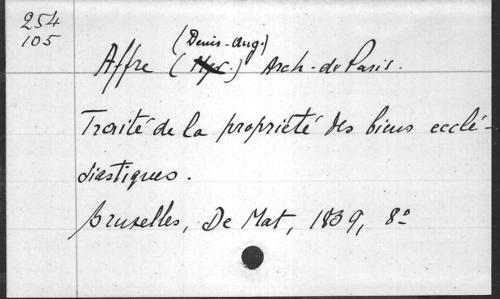 254
105
(Denis-Aug.)
Affre (Mgr.) Arch. de Paris.
Traité de la propriété des biens ecclé-
siastiques.
Bruxelles, De Mat, 1839, 8º